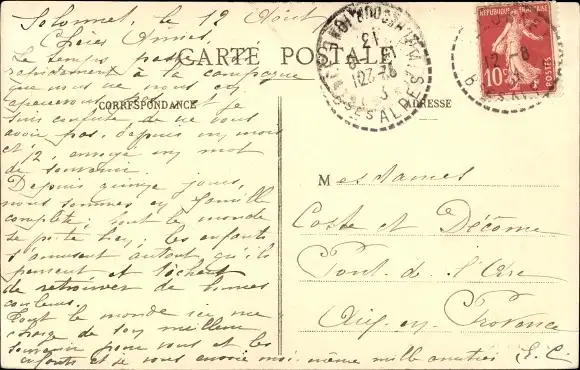 Solonnet, le 12 Août
Chères Amies,
Le temps passe
rapidement à la campagne
que nous ne nous en
apercevons pas et je
suis confuse de ne vous
avoir pas, depuis un mois
et 1/2, envoyé un mot
de souvenir.
Depuis quinze jours,
nous sommes en famille
complète; tout le monde
se porte bien; les enfants
s'amusent autant qu'ils
peuvent et tâchent
de retrouver de bonnes
couleurs.
Tout le monde ici me
charge de son meilleur
souvenir pour vous et les
enfants et je vous envoie moi-même mille amitiés E. C.
CARTE POSTALE
CORRESPONDANCE
ADRESSE
Mesdames
Coste et Décome
Pont de l'Arc
Aix en Provence
RÉPUBLIQUE FRANÇAISE
10c
POSTES
12-8
BSES ALPES